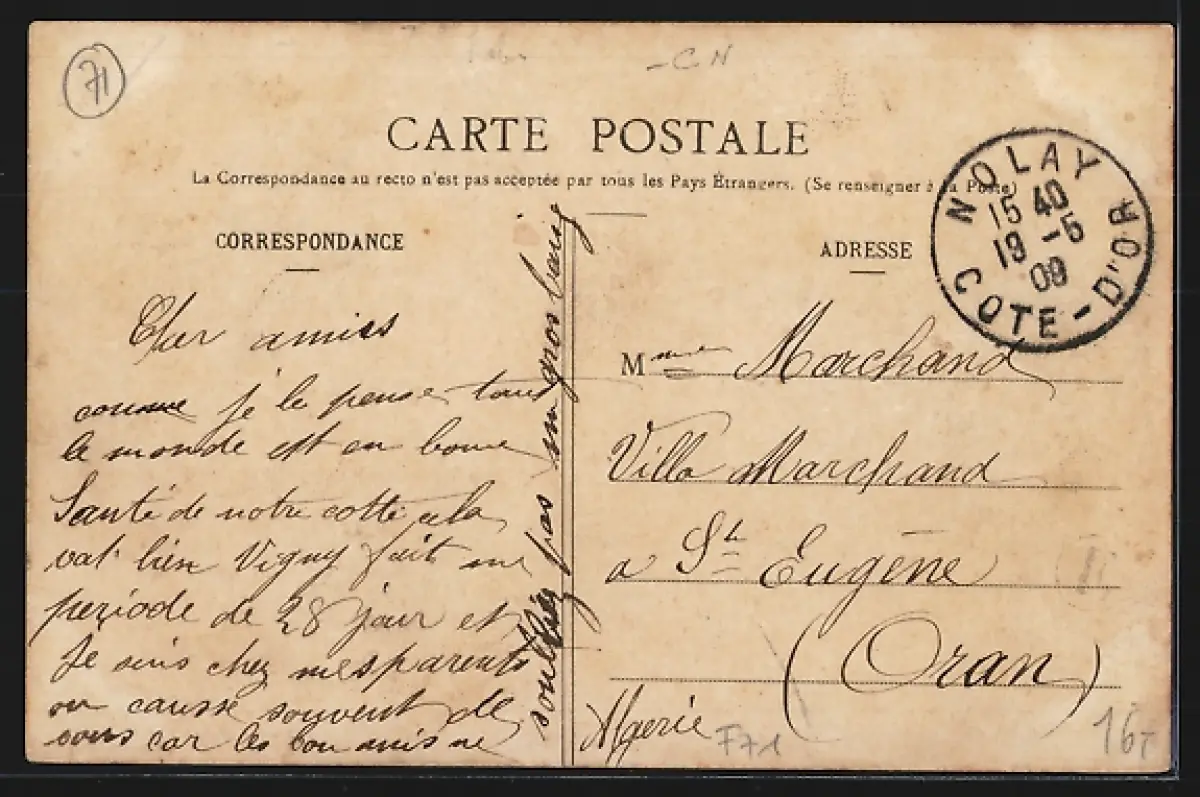 71
- C N
CARTE POSTALE
La Correspondance au recto n'est pas acceptée par tous les Pays Étrangers. (Se renseigner à la Poste)
CORRESPONDANCE
Cher amies
comme je le pense tout
le monde est en bonne
Santé de notre cotté cela
vat bien Vigny fait une
periode de 28 jour et
je suis chez mes parents
on causse souvent de
vous car les bon amis ne
soubliez pas un gros baisé
ADRESSE
NOLAY
15 40
19 -5
09
COTE-D'OR
Mme Marchand
Villa Marchand
a St Eugène
(Oran)
Algerie
F71
16T